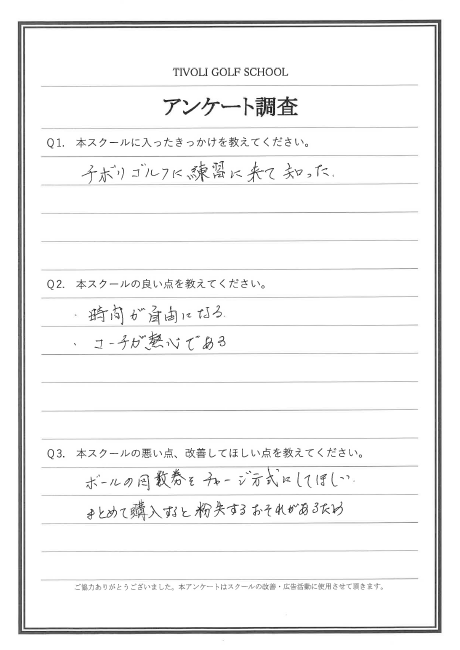 TIVOLI GOLF SCHOOL
アンケート調査
Q1. 本スクールに入ったきっかけを教えてください。
チボリゴルフに練習に来て知った.
Q2. 本スクールの良い点を教えてください。
・時間が自由になる.
・コーチが熱心である
Q3. 本スクールの悪い点、改善してほしい点を教えてください。
ボールの回数券をチャージ方式にしてほしい.
まとめて購入すると粉失するおそれがあるため
ご協力ありがとうございました。本アンケートはスクールの改善・広告活動に使用させて頂きます。